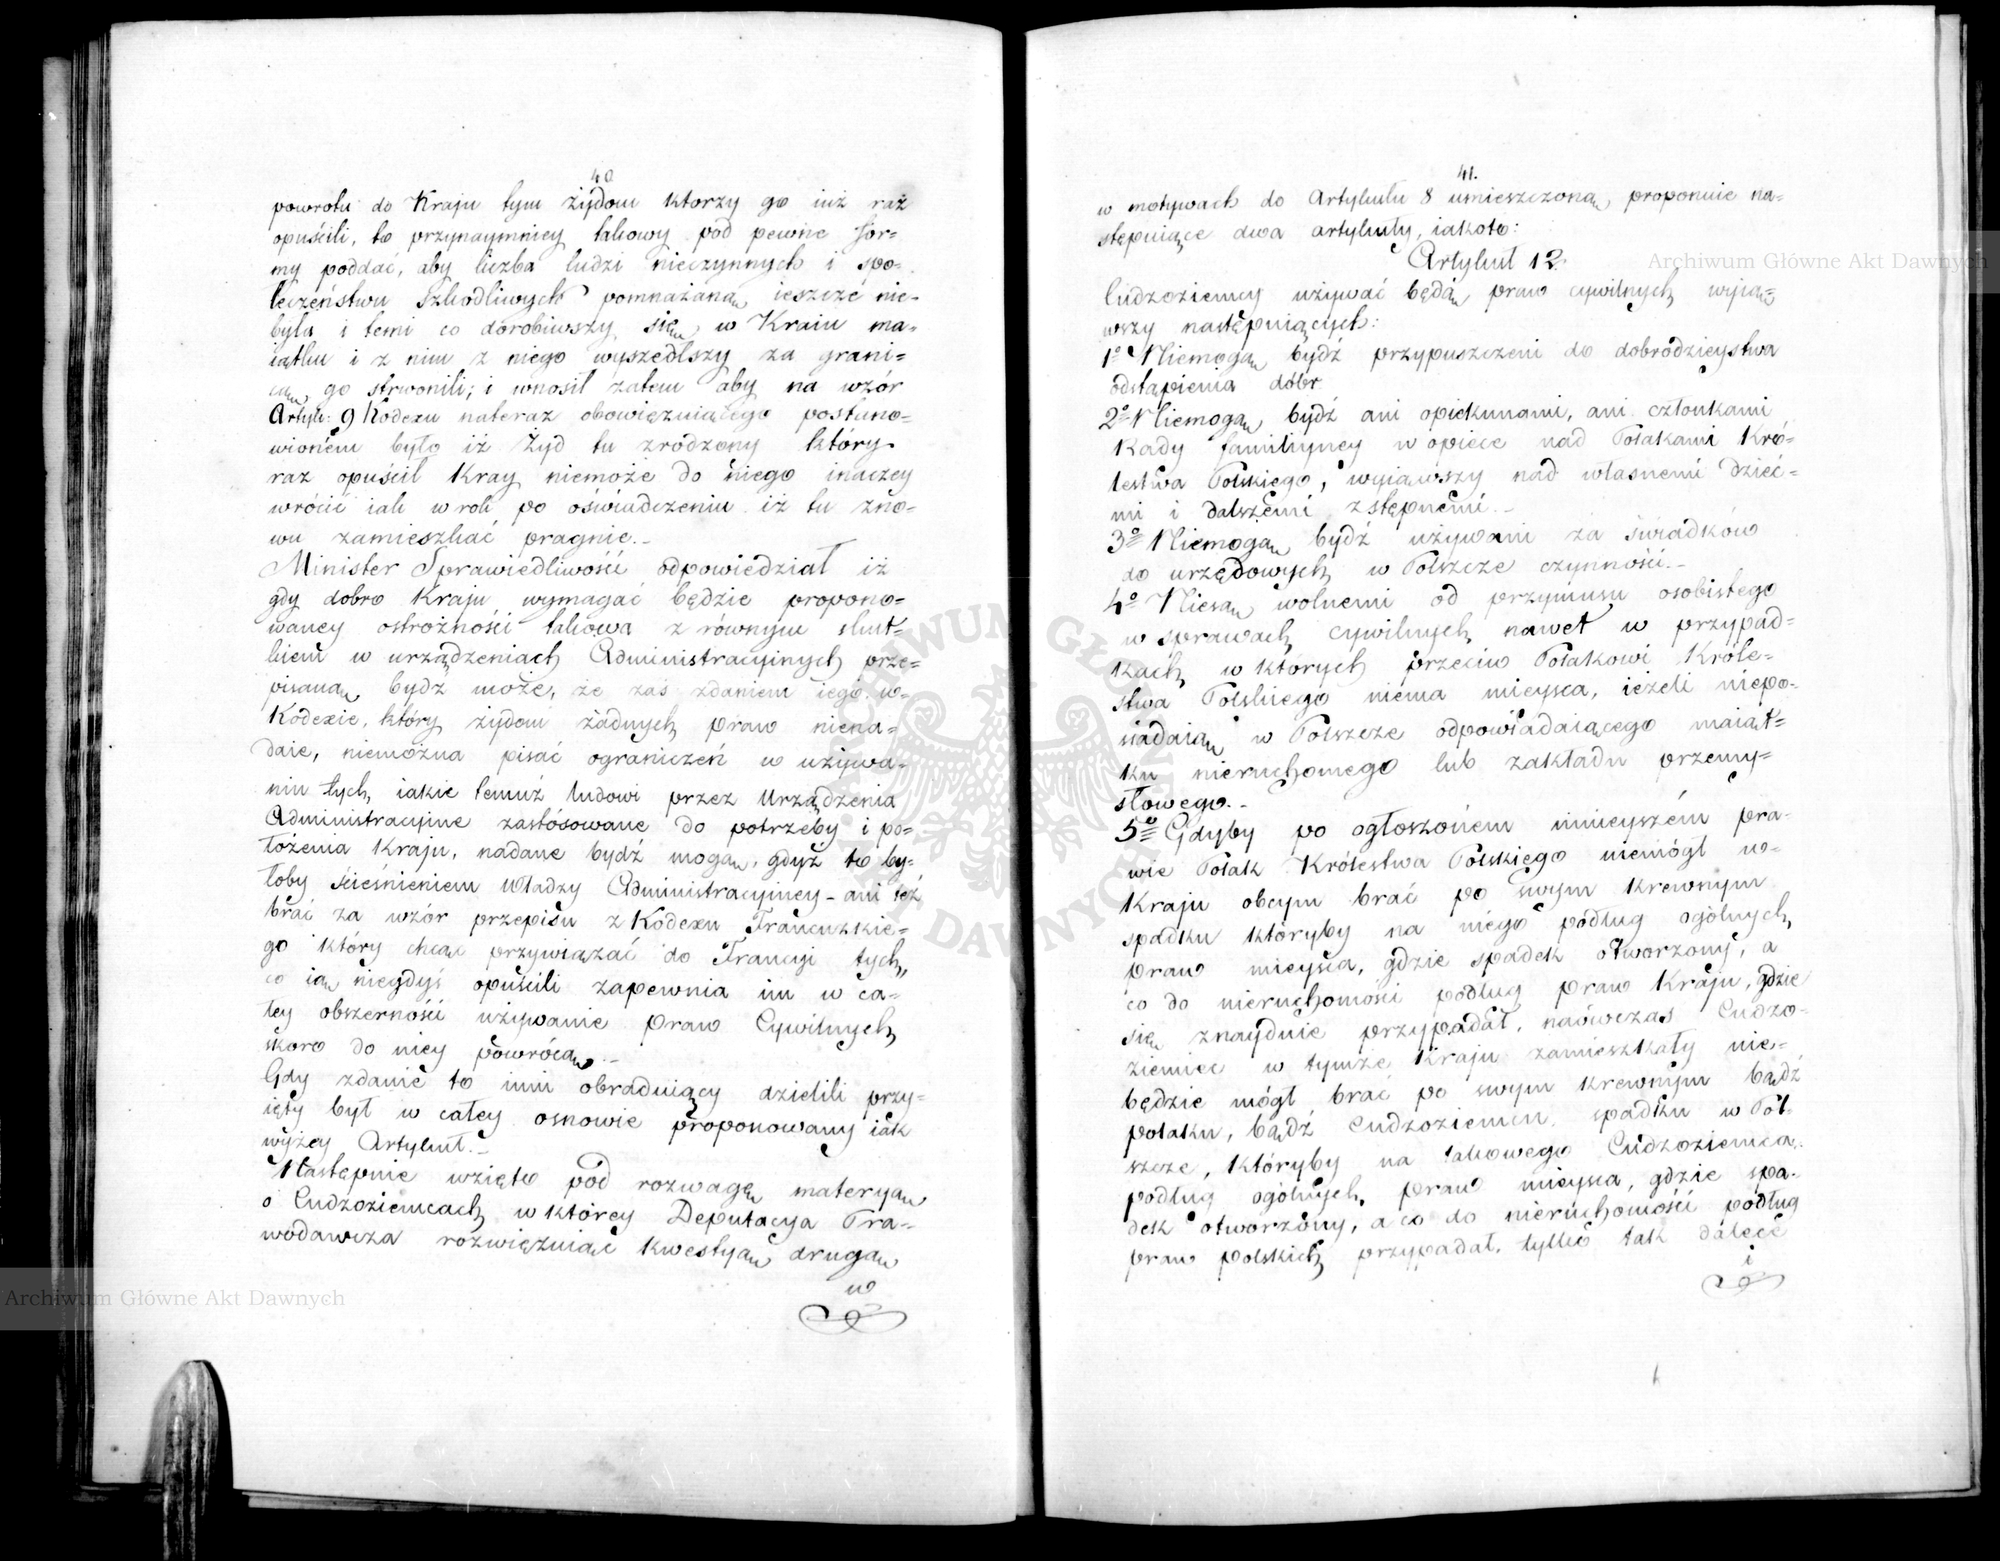 40
powrotu do Kraju tym żydom ktorzy go iuż raz
opuścili, to przynaymniey takowy pod pewne for=
my poddać, aby liczba ludzi nieczynnych i spo=
łeczeństwu szkodliwych pomnażaną ieszcze nie=
była i temi co dorobiwszy się w Kraiu ma=
iątku i z nim z niego wyszedłszy za grani=
cą go strwonili; i wnosił zatem aby na wzór
Artyk: 9 Kodexu nateraz obowięzuiącego postano=
wioném było iż Żyd tu zrodzony który
raz opuścił Kray niemoże do niego inaczey
wrócić iak w rok po oświadczeniu iż tu zno=
wu zamieszkać pragnie._
Minister Sprawiedliwości odpowiedział iż
gdy dobro Kraju wymagać będzie propono=
waney ostrożności takowa z równym skut=
kiem w urządzeniach Administracyinych prze=
pisaną bydź może, że zaś zdaniem iego w=
Kodexie, który żydom żadnych praw niena=
daie, niemożna pisać ograniczeń w używa=
niu tych, iakie temuż ludowi przez Urządzenia
Administracyine zastosowane do potrzeby i po=
łożenia Kraju, nadane bydź mogą, gdyż to by=
łoby ścieśnieniem Władzy Administracyiney - ani też
brać za wzór przepisu z Kodexu Francuzkie=
go który chcąc przywiązać do Francyi tych,
co ią niegdyś opuścili zapewnia im w ca=
łey obszerności używanie Praw Cywilnych
skoro do niey powrócą._
Gdy zdanie to inni obraduiący dzielili przy=
ięty był w całey osnowie proponowany iak
wyżey Artykuł._
Następnie wzięto pod rozwagę materyą
o Cudzoziemcach w którey Deputacya Pra=
wodawcza rozwięzuiąc kwestyą drugą
w
41.
w motywach do Artykułu 8 umieszczoną proponuie na=
stępuiące dwa artykuły, iakoto:
Artykuł 12.
Cudzoziemcy używać będą praw cywilnych wyią=
wszy następuiących:
1º Niemogą bydź przypuszczeni do dobrodzieystwa
odstąpienia dóbr
2º Niemogą bydź ani opiekunami, ani członkami
Rady familiyney w opiece nad Polakami Kró=
lestwa Polskiego, wyiąwszy nad własnemi dzieć=
mi i dalszemi zstępnemi._
3º Niemogą bydź używani za świadków
do urzędowych w Polszcze czynności._
4º Niesą wolnemi od przymusu osobistego
w sprawach cywilnych nawet w przypad=
kach w których przeciw Polakowi Króle=
stwa Polskiego niema mieysca, ieżeli niepo=
siadaią w Polszcze odpowiadaiącego maiąt=
ku nieruchomego lub zakładu przemy=
słowego._
5º Gdyby po ogłoszoném ninieyszém pra=
wie Polak Królestwa Polskiego niemógł w=
Kraju obcym brać po swym krewnym
spadku któryby na niego podług ogólnych
praw mieysca, gdzie spadek otworzony, a
co do nieruchomości podług praw Kraju, gdzie
się znayduie przypadał, naówczas Cudzo=
ziemiec w tymże Kraju zamieszkały nie=
będzie mógł brać po swym krewnym bądź
polaku, bądź Cudzoziemcu, spadku w Pol=
szcze, któryby na takowego Cudzoziemca
podług ogólnych praw mieysca, gdzie spa=
dek otworzony, a co do nieruchomości podług
praw polskich przypadał, tylko tak dalece
i
Archiwum Główne Akt Dawnych
Archiwum Główne Akt Dawnych
ARCHIWUM GŁÓWNE AKT DAWNYCH